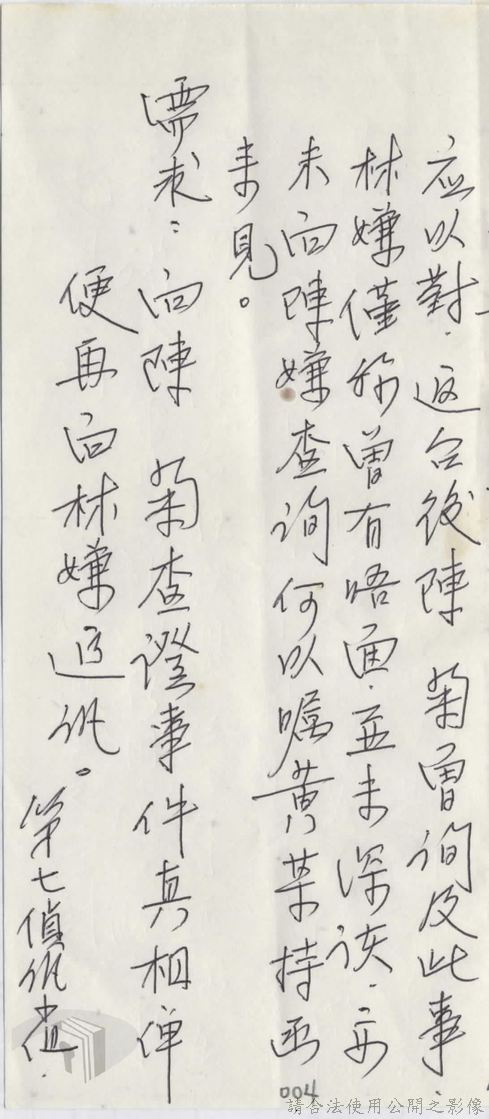 应以對．返台後陳 菊曾詢及此事．
林嫌僅称曾有唔面．並未深谈．亦
未向陳嫌查詢何以嘱黄某持函
来見。
需求：向陳 菊查證事件真相俾
便再向林嫌追訊。第七偵訊
004
請合法使用公開之影像